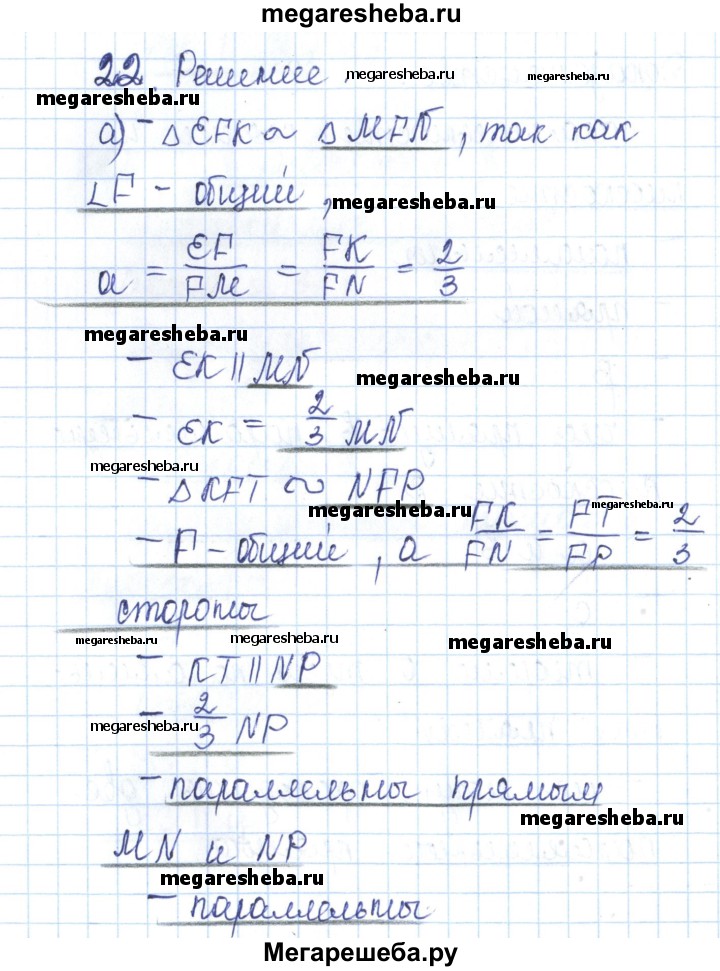 megaresheba.ru
22. Решение megaresheba.ru megaresheba.ru
megaresheba.ru
а) - Δ EFK ~ Δ MFN, так как
∠F - общий, megaresheba.ru
а = EF/FM = FK/FN = 2/3
megaresheba.ru
- EK || MN
megaresheba.ru
- EK = 2/3 MN
megaresheba.ru
- Δ KFT ~ NFP megaresheba.ru
megaresheba.ru
- F - общий, а FK/FN = FT/FP = 2/3
стороны
megaresheba.ru megaresheba.ru megaresheba.ru
- KT || NP
- 2/3 NP
megaresheba.ru
- параллельны прямым
megaresheba.ru
MN и NP
megaresheba.ru
- параллельны
Мегарешеба.ру